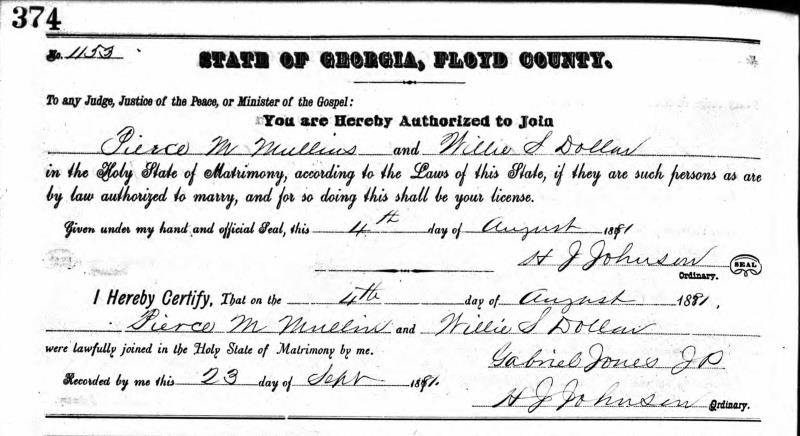 374
No. 453
STATE OF GEORGIA, FLOYD COUNTY.
To any Judge, Justice of the Peace, or Minister of the Gospel:
You are Hereby Authorized to Join
Pierce M Mullins and Willie S Dollar
in the Holy State of Matrimony, according to the Laws of this State, if they are such persons as are
by law authorized to marry, and for so doing this shall be your license.
Given under my hand and official Seal, this 4th day of August 1881
H J Johnson SEAL
Ordinary.
I Hereby Certify, That on the 4th day of August 1881.
Pierce M Mullin and Willie S Dollar
were lawfully joined in the Holy State of Matrimony by me.
Gabriel Jones J P
Recorded by me this 23 day of Sept 1881.
H J Johnson Ordinary.